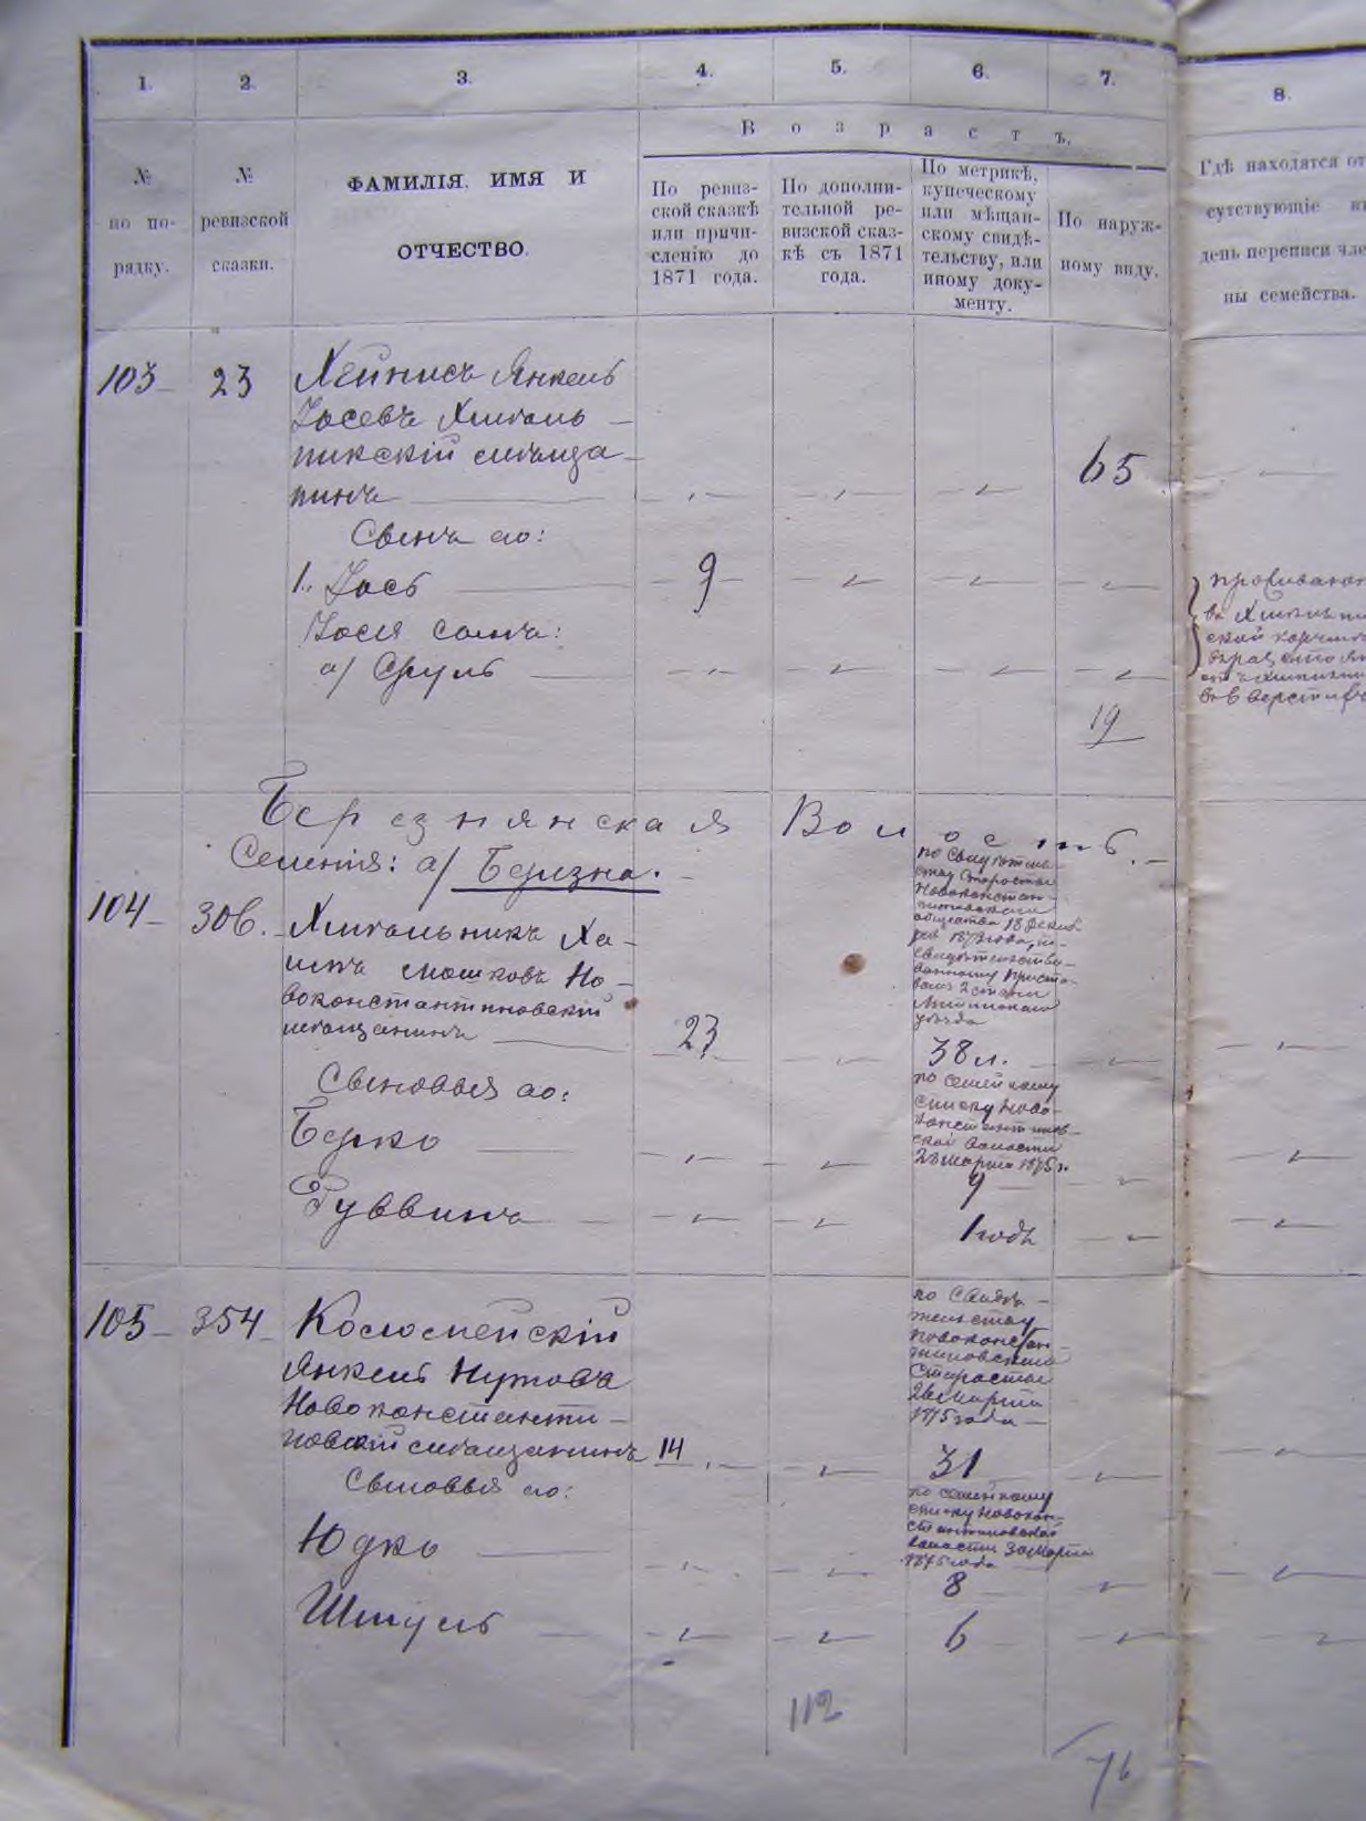 1. 2. 3. 4. 5. 6. 7. 8.
Возрастъ.
№ по по-
рядку.
№
ревизской
сказки.
ФАМИЛІЯ, ИМЯ И
ОТЧЕСТВО.
По ревиз-
ской сказкѣ
или причи-
сленію до
1871 года.
По дополни-
тельной ре-
визской сказ-
кѣ съ 1871
года.
По метрикѣ,
купеческому
или мѣщан-
скому свидѣ-
тельству, или
иному доку-
менту.
По наруж-
ному виду.
Гдѣ находятся от
сутствующіе въ
день переписи чле
ны семейства.
103 23 Хейнисъ Янкель
Іосевъ Хмѣль
никскій мѣща
нинъ 65
Сынъ его:
1. Іось 9
Іося сынъ:
а/ Сруль
19
проживают
Березнянская Волость.
Селенія: а/ Березна.
104 306. Хмѣльникъ Ха-
имъ Мошковъ Но-
воконстантиновскій
мѣщанинъ 23
по свидѣтель-
ству Старосты
Новоконстан-
тиновскаго
общества 18 Декаб
Литинскаго
уѣзда
38 л.
Сыновья его:
Берко
по семейному
списку Ново-
константинов-
ской волости
28 Марта 1875 г.
9
Руввинъ 1 годъ
105 354 Коломейскій
Янкель Нутовъ
Новоконстанти-
новскій мѣщанинъ 14
по свидѣ-
тельству
новоконстан-
тиновскаго
Старосты
28 Марта
1875 года
31
Сыновья его:
Юдко
по семейному
списку Новокон-
стантиновской
волости 30 Марта
1875 года
8
Шмуль 6
112
76